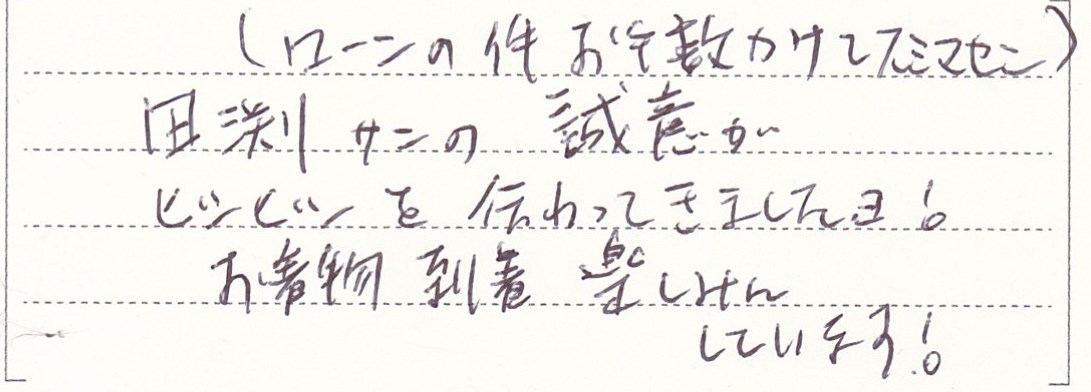 (ローンの件お手数かけてスミマセン)
田渕サンの 誠意が
ビンビンと伝わってきましたヨ!
お着物 到着 楽しみに
しています!